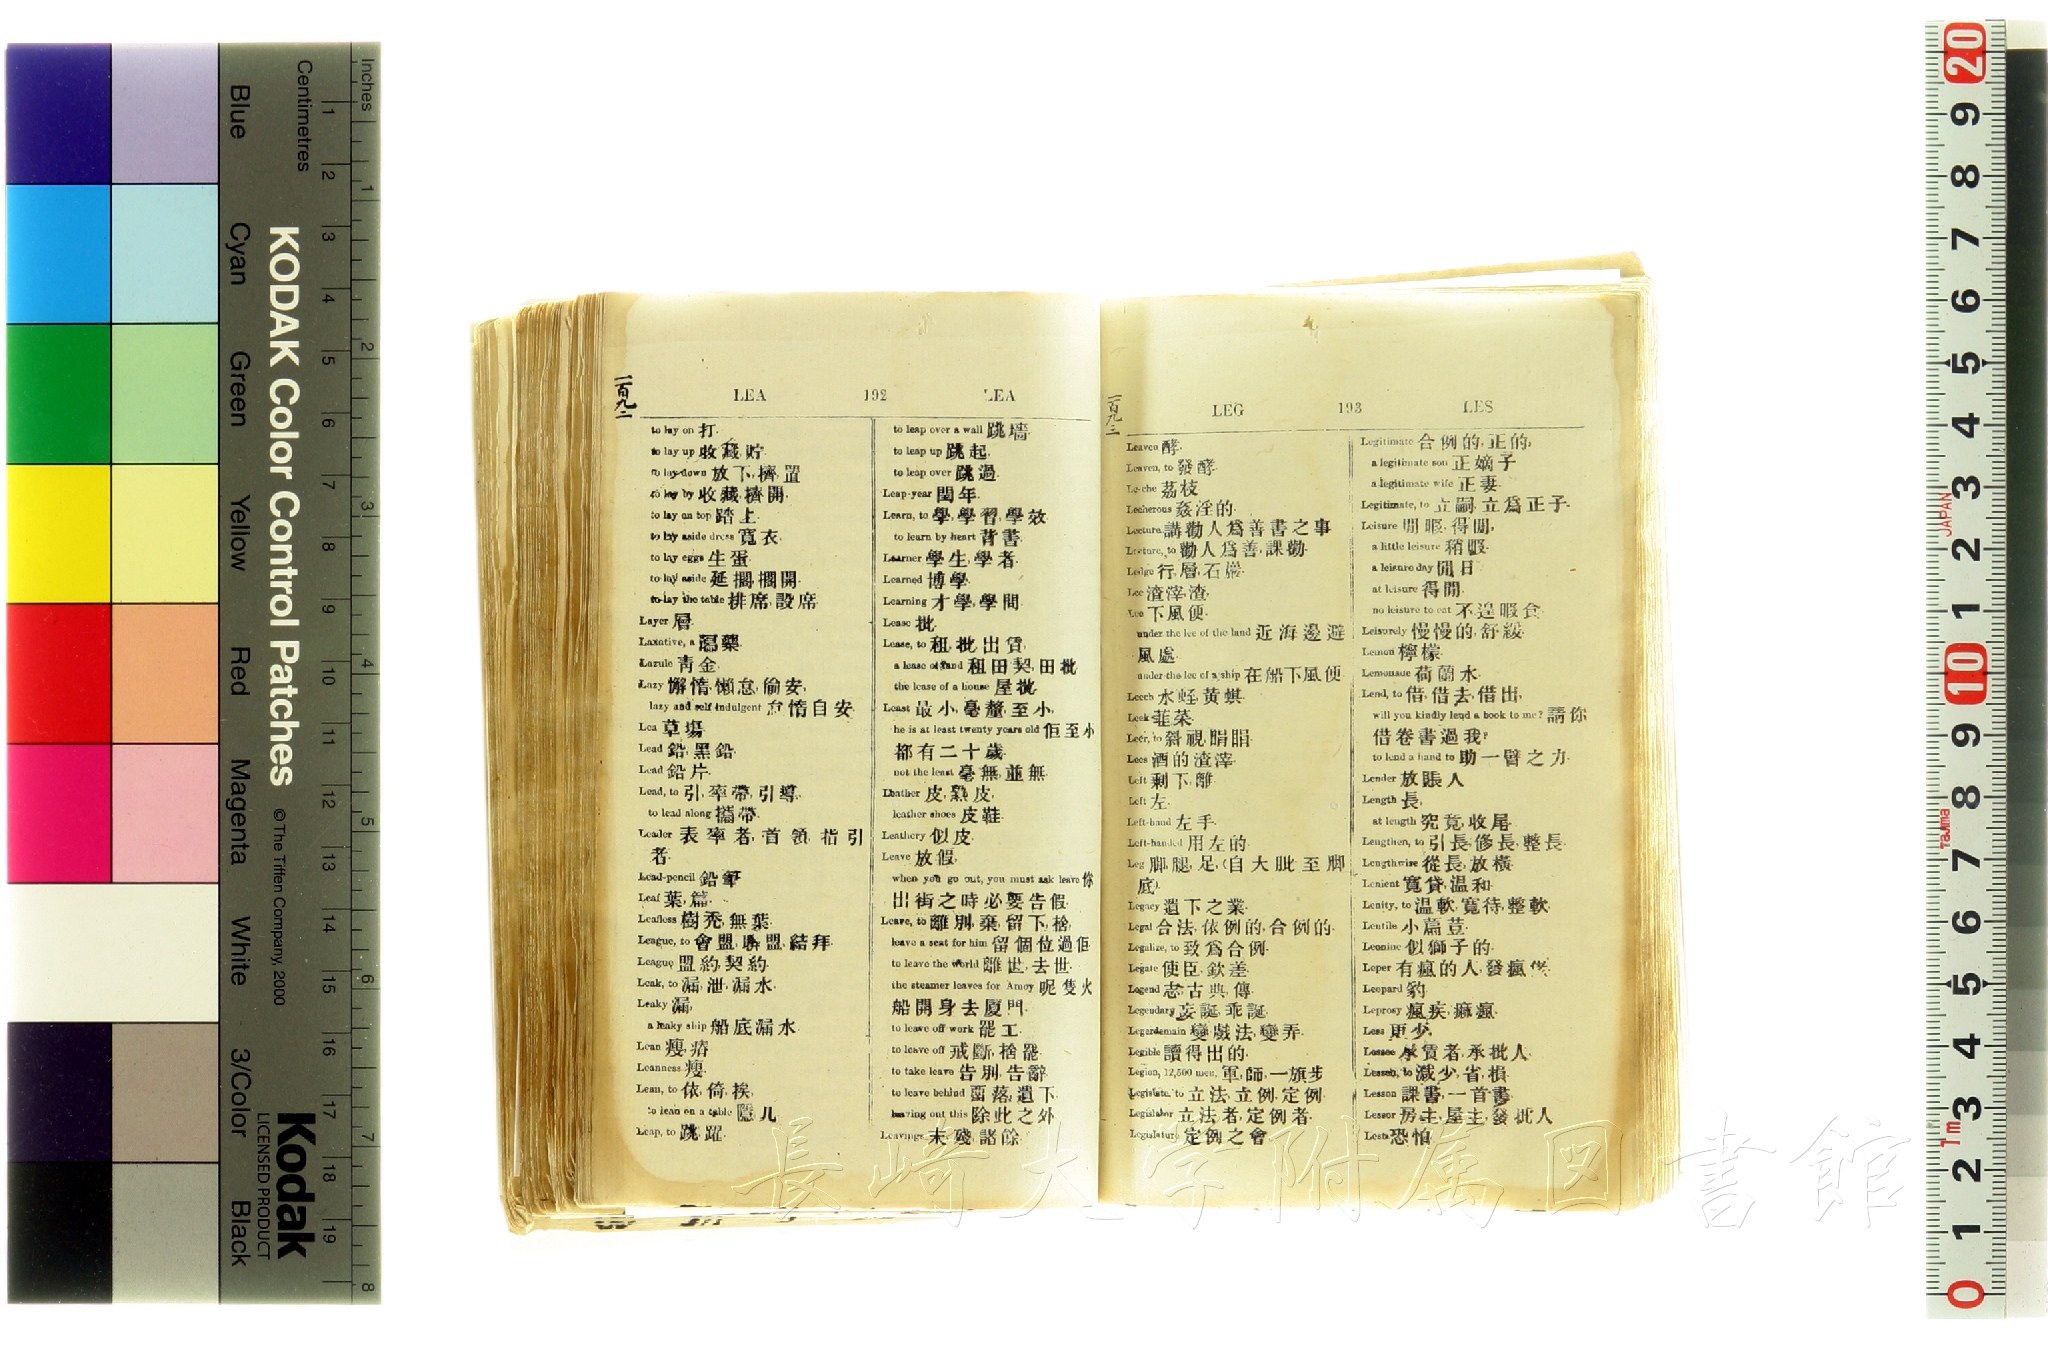 Blue
Cyan
Green
Yellow
Red
Magenta
White
3/Color
Black
Centimetres
KODAK Color Control Patches
© The Tiffen Company, 2000
Kodak
LICENSED PRODUCT
Inches
1 2 3 4 5 6 7 8 9 10 11 12 13 14 15 16 17 18 19
1 2 3 4 5 6 7 8
一百九二
LEA 192 LEA
to lay on 打.
to lay up 收藏, 貯.
to lay down 放下, 擠置
to lay by 收藏, 擠開.
to lay on top 踏上.
to lay aside dress 寬衣.
to lay eggs 生蛋.
to lay aside 延擱, 擱開.
to lay the table 排席, 設席
Layer 層.
Laxative, a 瀉藥.
Lazule 靑金.
Lazy 懈惰, 懶怠, 偷安,
lazy and self indulgent 怠惰自安.
Lea 草塲.
Lead 鉛, 黑鉛.
Lead 鉛片.
Lead, to 引, 率帶, 引導.
to lead along 攜帶.
Leader 表率者, 首領, 指引
者.
Lead-pencil 鉛筆
Leaf 葉, 篇.
Leafless 樹禿, 無葉.
League, to 會盟, 聯盟, 結拜.
League 盟約, 契約.
Leak, to 漏, 泄, 漏水.
Leaky 漏,
a leaky ship 船底漏水.
Lean 瘦, 瘠
Leanness 瘦.
Lean, to 依, 倚, 挨,
to lean on a table 隱几
Leap, to 跳, 躍.
to leap over a wall 跳墻.
to leap up 跳起.
to leap over 跳過.
Leap-year 閏年.
Learn, to 學, 學習, 學效
to learn by heart 背書.
Learner 學生, 學者.
Learned 博學.
Learning 才學, 學問.
Lease 批.
Lease, to 租, 批出, 賃.
a lease of land 租田契, 田批
the lease of a house 屋批.
Least 最小, 毫釐, 至小,
he is at least twenty years old 佢至小
都有二十歲.
not the least 毫無, 並無.
Leather 皮, 熟皮.
leather shoes 皮鞋.
Leathery 似皮.
Leave 放假,
when you go out, you must ask leave 你
出街之時必要告假.
Leave, to 離別, 棄, 留下, 捨,
leave a seat for him 留個位過佢
to leave the world 離世, 去世.
the steamer leaves for Amoy 呢隻火
船開身去廈門.
to leave off work 罷工.
to leave off 戒斷, 捨罷.
to take leave 告別, 告辭.
to leave behind 留落, 遺下
leaving out this 除此之外
Leavings 殘, 諸餘.
一百九三
LEG 193 LES
Leaven 酵.
Leaven, to 發酵.
Le-che 荔枝
Lecherous 姦淫的.
Lecture 講勸人爲善書之事
Lecture, to 勸人爲善, 課勸.
Ledge 行, 層, 石巖.
Lee 渣滓, 渣.
Lee 下風便.
under the lee of the land 近海邊避
風處.
under the lee of a ship 在船下風便.
Leech 水蛭, 黃蜞.
Leek 韮菜.
Leer, to 斜視, 睊睊.
Lees 酒的渣滓.
Left 剩下, 離
Left 左.
Left-hand 左手.
Left-handed 用左的.
Leg 脚, 腿, 足, (自大髀至脚
底).
Legacy 遺下之業.
Legal 合法, 依例的, 合例的.
Legalize, to 致爲合例.
Legate 使臣, 欽差.
Legend 志, 古典, 傳.
Legendary 妄誕, 乖誕.
Legerdemain 變戲法, 變弄.
Legible 讀得出的.
Legion, 12,500 men, 軍, 師, 一旗步
Legislate, to 立法, 立例, 定例.
Legislator 立法者, 定例者.
Legislature 定例之會
Legitimate 合例的, 正的,
a legitimate son 正嫡子
a legitimate wife 正妻.
Legitimate, to 立嗣, 立爲正子.
Leisure 閒暇, 得閒,
a little leisure 稍暇.
a leisure day 閒日.
at leisure 得閒.
no leisure to eat 不遑暇食.
Leisurely 慢慢的, 舒緩.
Lemon 檸檬.
Lemonade 荷蘭水.
Lend, to 借, 借去, 借出,
will you kindly lend a book to me? 請你
借卷書過我?
to lend a hand to 助一臂之力.
Lender 放賬人
Length 長,
at length 究竟, 收尾.
Lengthen, to 引長, 修長, 整長.
Lengthwise 從長, 放橫.
Lenient 寬貸, 温和.
Lenity, to 温軟, 寬待, 整軟.
Lentile 小藊荳.
Leonine 似獅子的.
Leper 有瘋的人, 發瘋
Leopard 豹.
Leprosy 瘋疾, 痲瘋.
Less 更少.
Lessee 承賃者, 承批人.
Lessen, to 減少, 省, 損.
Lesson 課書, 一首書.
Lessor 房主, 屋主, 發批人
Lest 恐怕.
長崎大学附属図書館
20 9 8 7 6 5 4 3 2 1 10 9 8 7 6 5 4 3 2 1 0
JAPAN
Tajima
1m